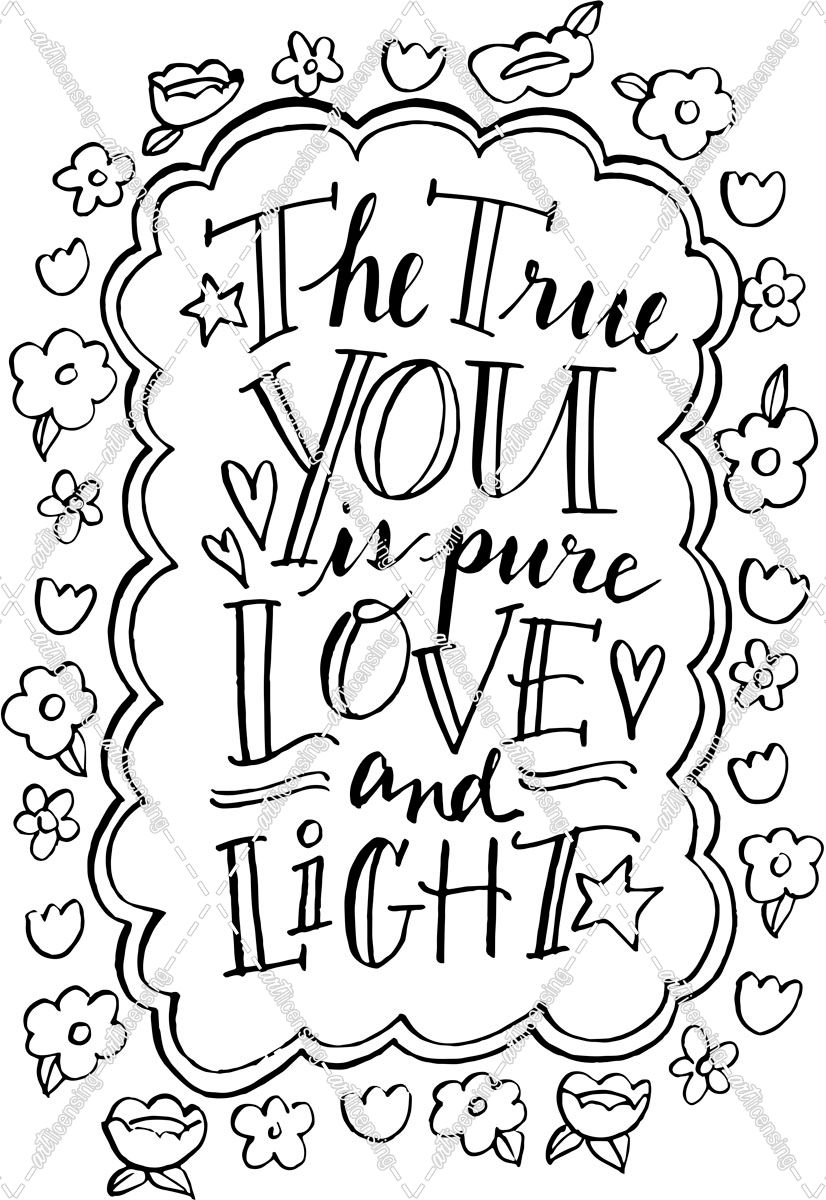 The True
YOU
is pure
LOVE
and
LiGHT